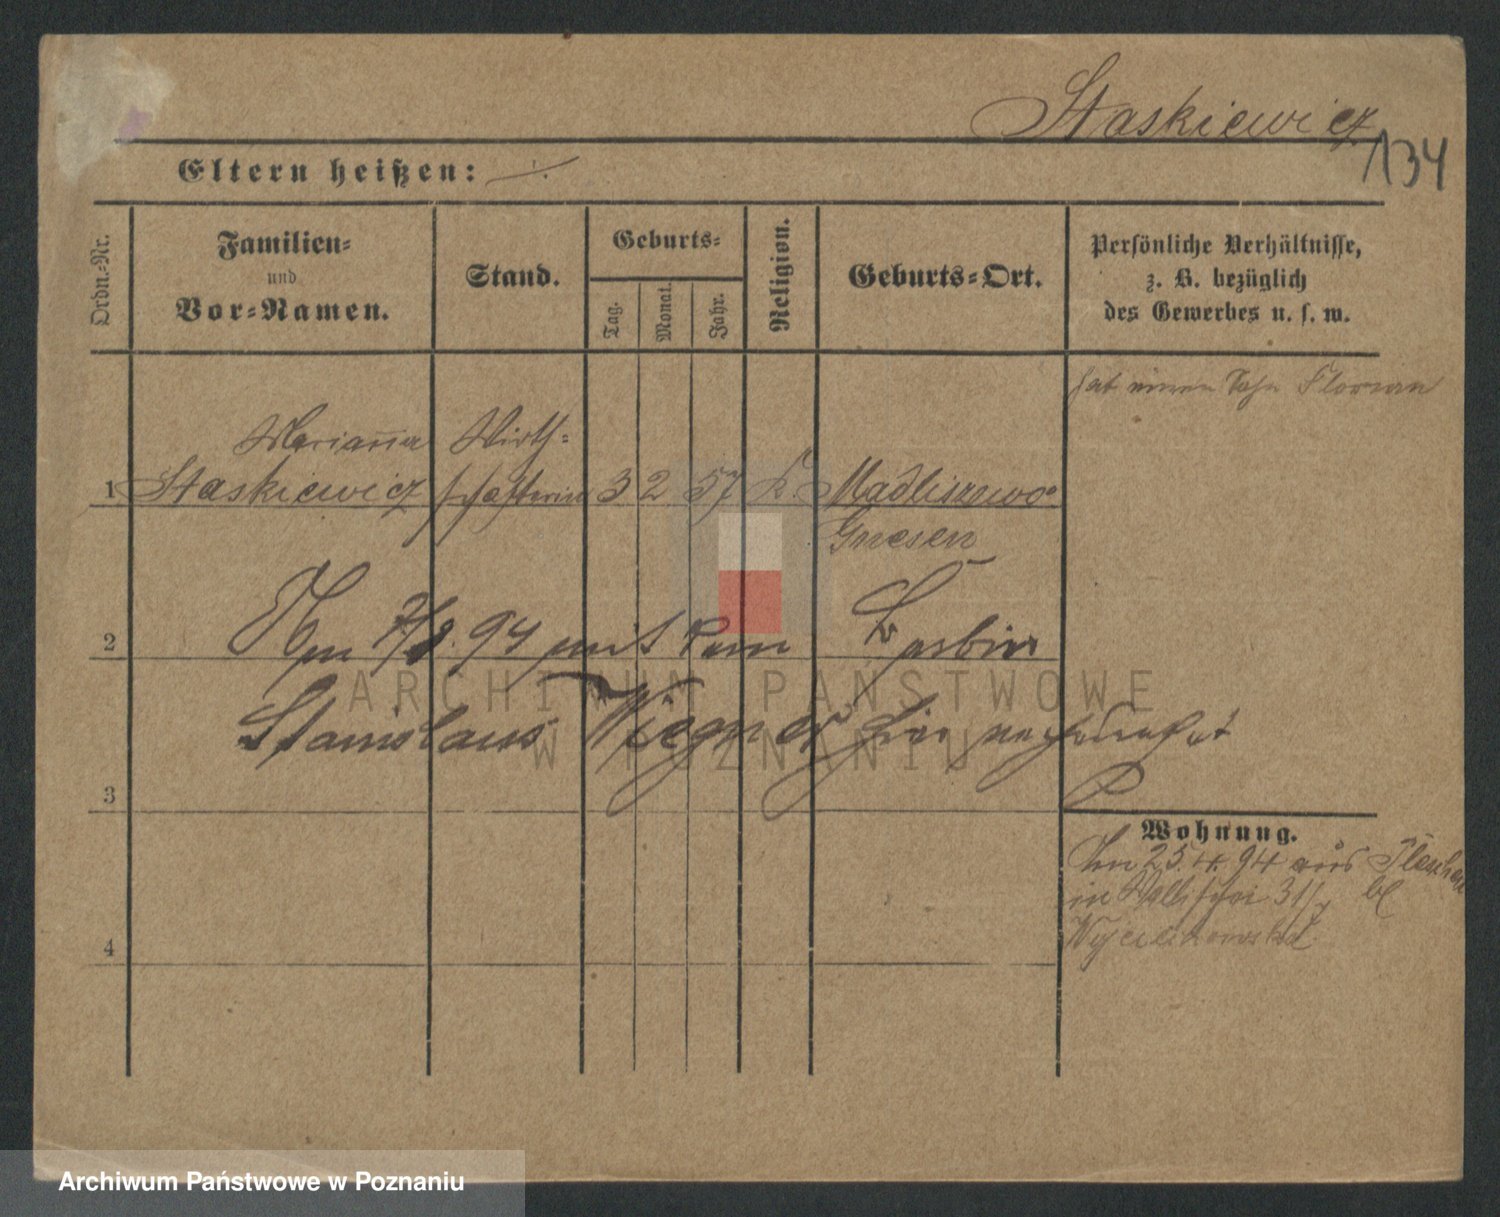 Staskiewicz
134
Eltern heißen: ./.
Ordn.-Nr.
Familien-
und
Vor-Namen.
Stand.
Geburts-
Tag.
Monat.
Jahr.
Religion.
Geburts-Ort.
Persönliche Verhältnisse,
z. B. bezüglich
des Gewerbes u. s. w.
hat einen Sohn Florian
Marianna Wirth-
1 Staskiewicz schafterin 3 2 57 K.
Gnesen
2 Am 94 mit dem
ARCHIWUM PAŃSTWOWE
W POZNANIU
Stanislaus Wiegner hier
3
Wohnung.
Am 25.4.94 aus
in 31/
4
Archiwum Państwowe w Poznaniu